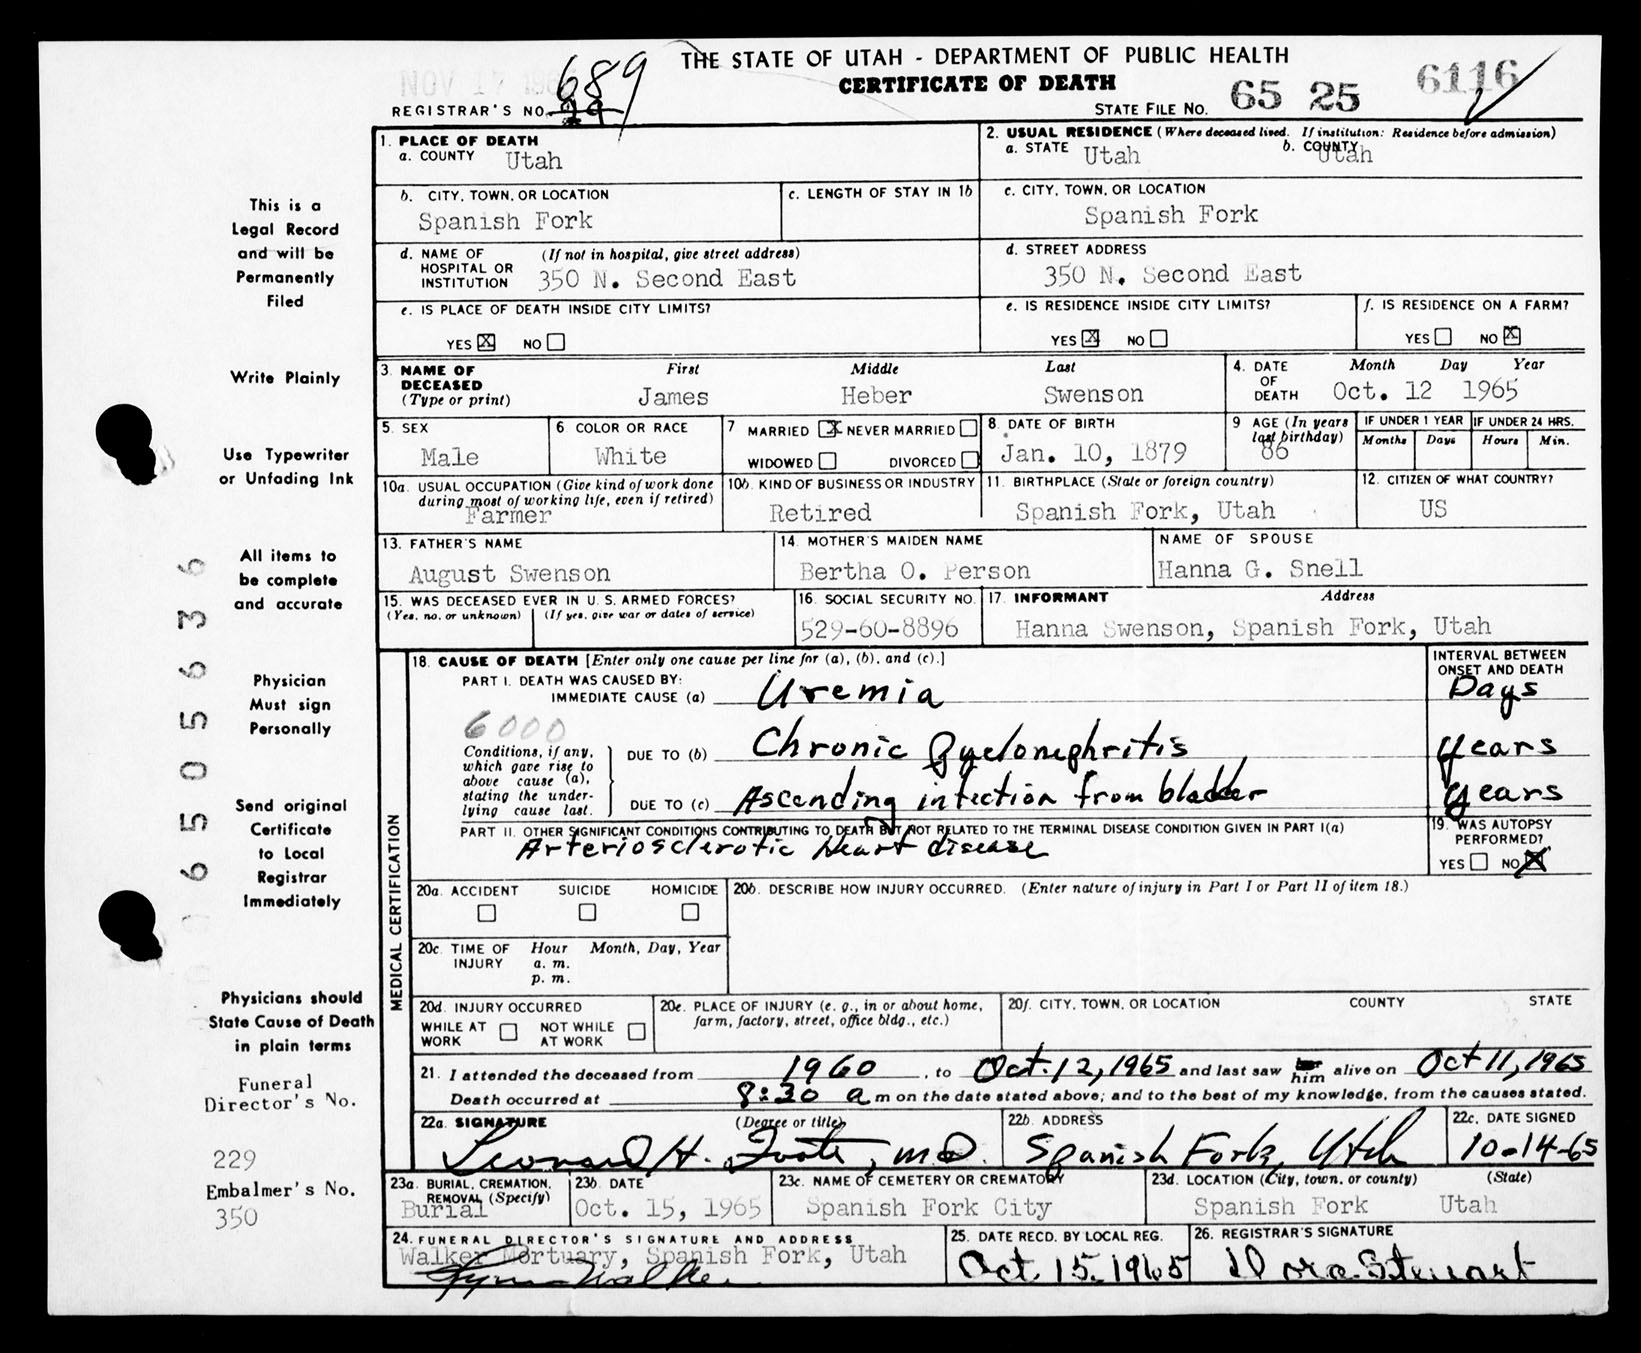 THE STATE OF UTAH - DEPARTMENT OF PUBLIC HEALTH
CERTIFICATE OF DEATH
NOV 17
REGISTRAR'S NO. 19 689
STATE FILE NO. 65 25 6116
This is a
Legal Record
and will be
Permanently
Filed
Write Plainly
Use Typewriter
or Unfading Ink
All items to
be complete
and accurate
Physician
Must sign
Personally
Send original
Certificate
to Local
Registrar
Immediately
Physicians should
State Cause of Death
in plain terms
Funeral
Director's No.
229
Embalmer's No.
350
650563 6
1. PLACE OF DEATH
a. COUNTY Utah
2. USUAL RESIDENCE (Where deceased lived. If institution: Residence before admission)
a. STATE Utah b. COUNTY Utah
b. CITY, TOWN, OR LOCATION
Spanish Fork
c. LENGTH OF STAY IN 1b
c. CITY, TOWN, OR LOCATION
Spanish Fork
d. NAME OF HOSPITAL OR INSTITUTION (If not in hospital, give street address)
350 N. Second East
d. STREET ADDRESS
350 N. Second East
e. IS PLACE OF DEATH INSIDE CITY LIMITS?
YES X NO
e. IS RESIDENCE INSIDE CITY LIMITS?
YES X NO
f. IS RESIDENCE ON A FARM?
YES NO X
3. NAME OF DECEASED (Type or print)
First Middle Last
James Heber Swenson
4. DATE OF DEATH Month Day Year
Oct. 12 1965
5. SEX
Male
6 COLOR OR RACE
White
7 MARRIED X NEVER MARRIED
WIDOWED DIVORCED
8. DATE OF BIRTH
Jan. 10, 1879
9 AGE (In years last birthday)
86
IF UNDER 1 YEAR IF UNDER 24 HRS.
Months Days Hours Min.
10a. USUAL OCCUPATION (Give kind of work done during most of working life, even if retired)
Farmer
10b. KIND OF BUSINESS OR INDUSTRY
Retired
11. BIRTHPLACE (State or foreign country)
Spanish Fork, Utah
12. CITIZEN OF WHAT COUNTRY?
US
13. FATHER'S NAME
August Swenson
14. MOTHER'S MAIDEN NAME
Bertha O. Person
NAME OF SPOUSE
Hanna G. Snell
15. WAS DECEASED EVER IN U. S. ARMED FORCES?
(Yes, no, or unknown) (If yes, give war or dates of service)
16. SOCIAL SECURITY NO.
529-60-8896
17. INFORMANT Address
Hanna Swenson, Spanish Fork, Utah
MEDICAL CERTIFICATION
18. CAUSE OF DEATH [Enter only one cause per line for (a), (b), and (c).]
INTERVAL BETWEEN ONSET AND DEATH
PART I. DEATH WAS CAUSED BY:
IMMEDIATE CAUSE (a) Uremia Days
6000
Conditions, if any, which gave rise to above cause (a), stating the underlying cause last.
DUE TO (b) Chronic Pyelonephritis years
DUE TO (c) Ascending infection from bladder years
PART II. OTHER SIGNIFICANT CONDITIONS CONTRIBUTING TO DEATH BUT NOT RELATED TO THE TERMINAL DISEASE CONDITION GIVEN IN PART I(a)
Arteriosclerotic heart disease
19. WAS AUTOPSY PERFORMED?
YES NO X
20a. ACCIDENT SUICIDE HOMICIDE
20b. DESCRIBE HOW INJURY OCCURRED. (Enter nature of injury in Part I or Part II of item 18.)
20c. TIME OF INJURY Hour Month, Day, Year
a. m.
p. m.
20d. INJURY OCCURRED
WHILE AT WORK NOT WHILE AT WORK
20e. PLACE OF INJURY (e. g., in or about home, farm, factory, street, office bldg., etc.)
20f. CITY, TOWN, OR LOCATION COUNTY STATE
21. I attended the deceased from 1960, to Oct. 12, 1965 and last saw him alive on Oct 11, 1965
Death occurred at 8:30 a m on the date stated above; and to the best of my knowledge, from the causes stated.
22a. SIGNATURE (Degree or title)
Leonard H. Foote, M.D.
22b. ADDRESS
Spanish Fork, Utah
22c. DATE SIGNED
10-14-65
23a. BURIAL, CREMATION, REMOVAL (Specify)
Burial
23b. DATE
Oct. 15, 1965
23c. NAME OF CEMETERY OR CREMATORY
Spanish Fork City
23d. LOCATION (City, town, or county) (State)
Spanish Fork Utah
24. FUNERAL DIRECTOR'S SIGNATURE AND ADDRESS
Walker Mortuary, Spanish Fork, Utah
Walker
25. DATE RECD. BY LOCAL REG.
Oct. 15, 1965
26. REGISTRAR'S SIGNATURE
Dora Stewart